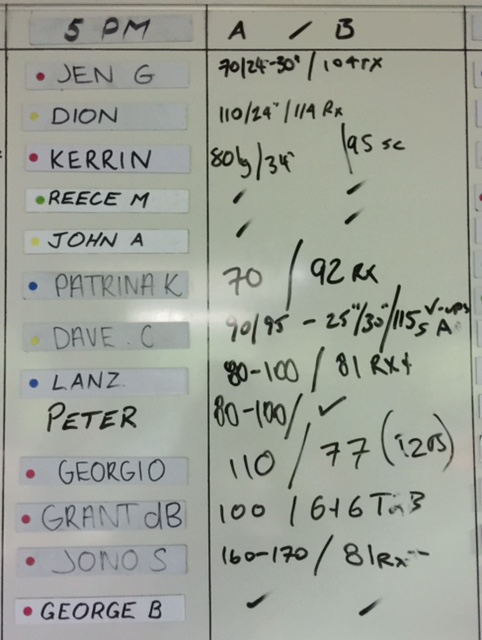 5 PM A / B
JEN G 70/24"-30" / 104 rx
DION 110/24" / 114 Rx
KERRIN 80kg/34" / 95 sc
REECE M ✓ ✓
JOHN A ✓ ✓
PATRINA K 70 / 92 Rx
DAVE . C 90/95 - 25"/30"/115 V-ups A
LANZ 80-100 / 81 Rx+
PETER 80-100/ ✓
GEORGIO 110 / 77
GRANT dB 100 / 6+6
JONO S 160-170 / 81 Rx
GEORGE B ✓ ✓